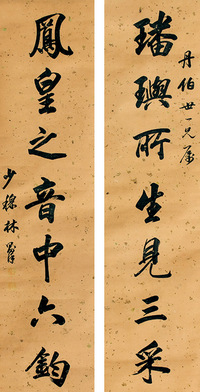 丹伯世一兄屬
璠璵所生見三采
鳳皇之音中六鈞
少穆林